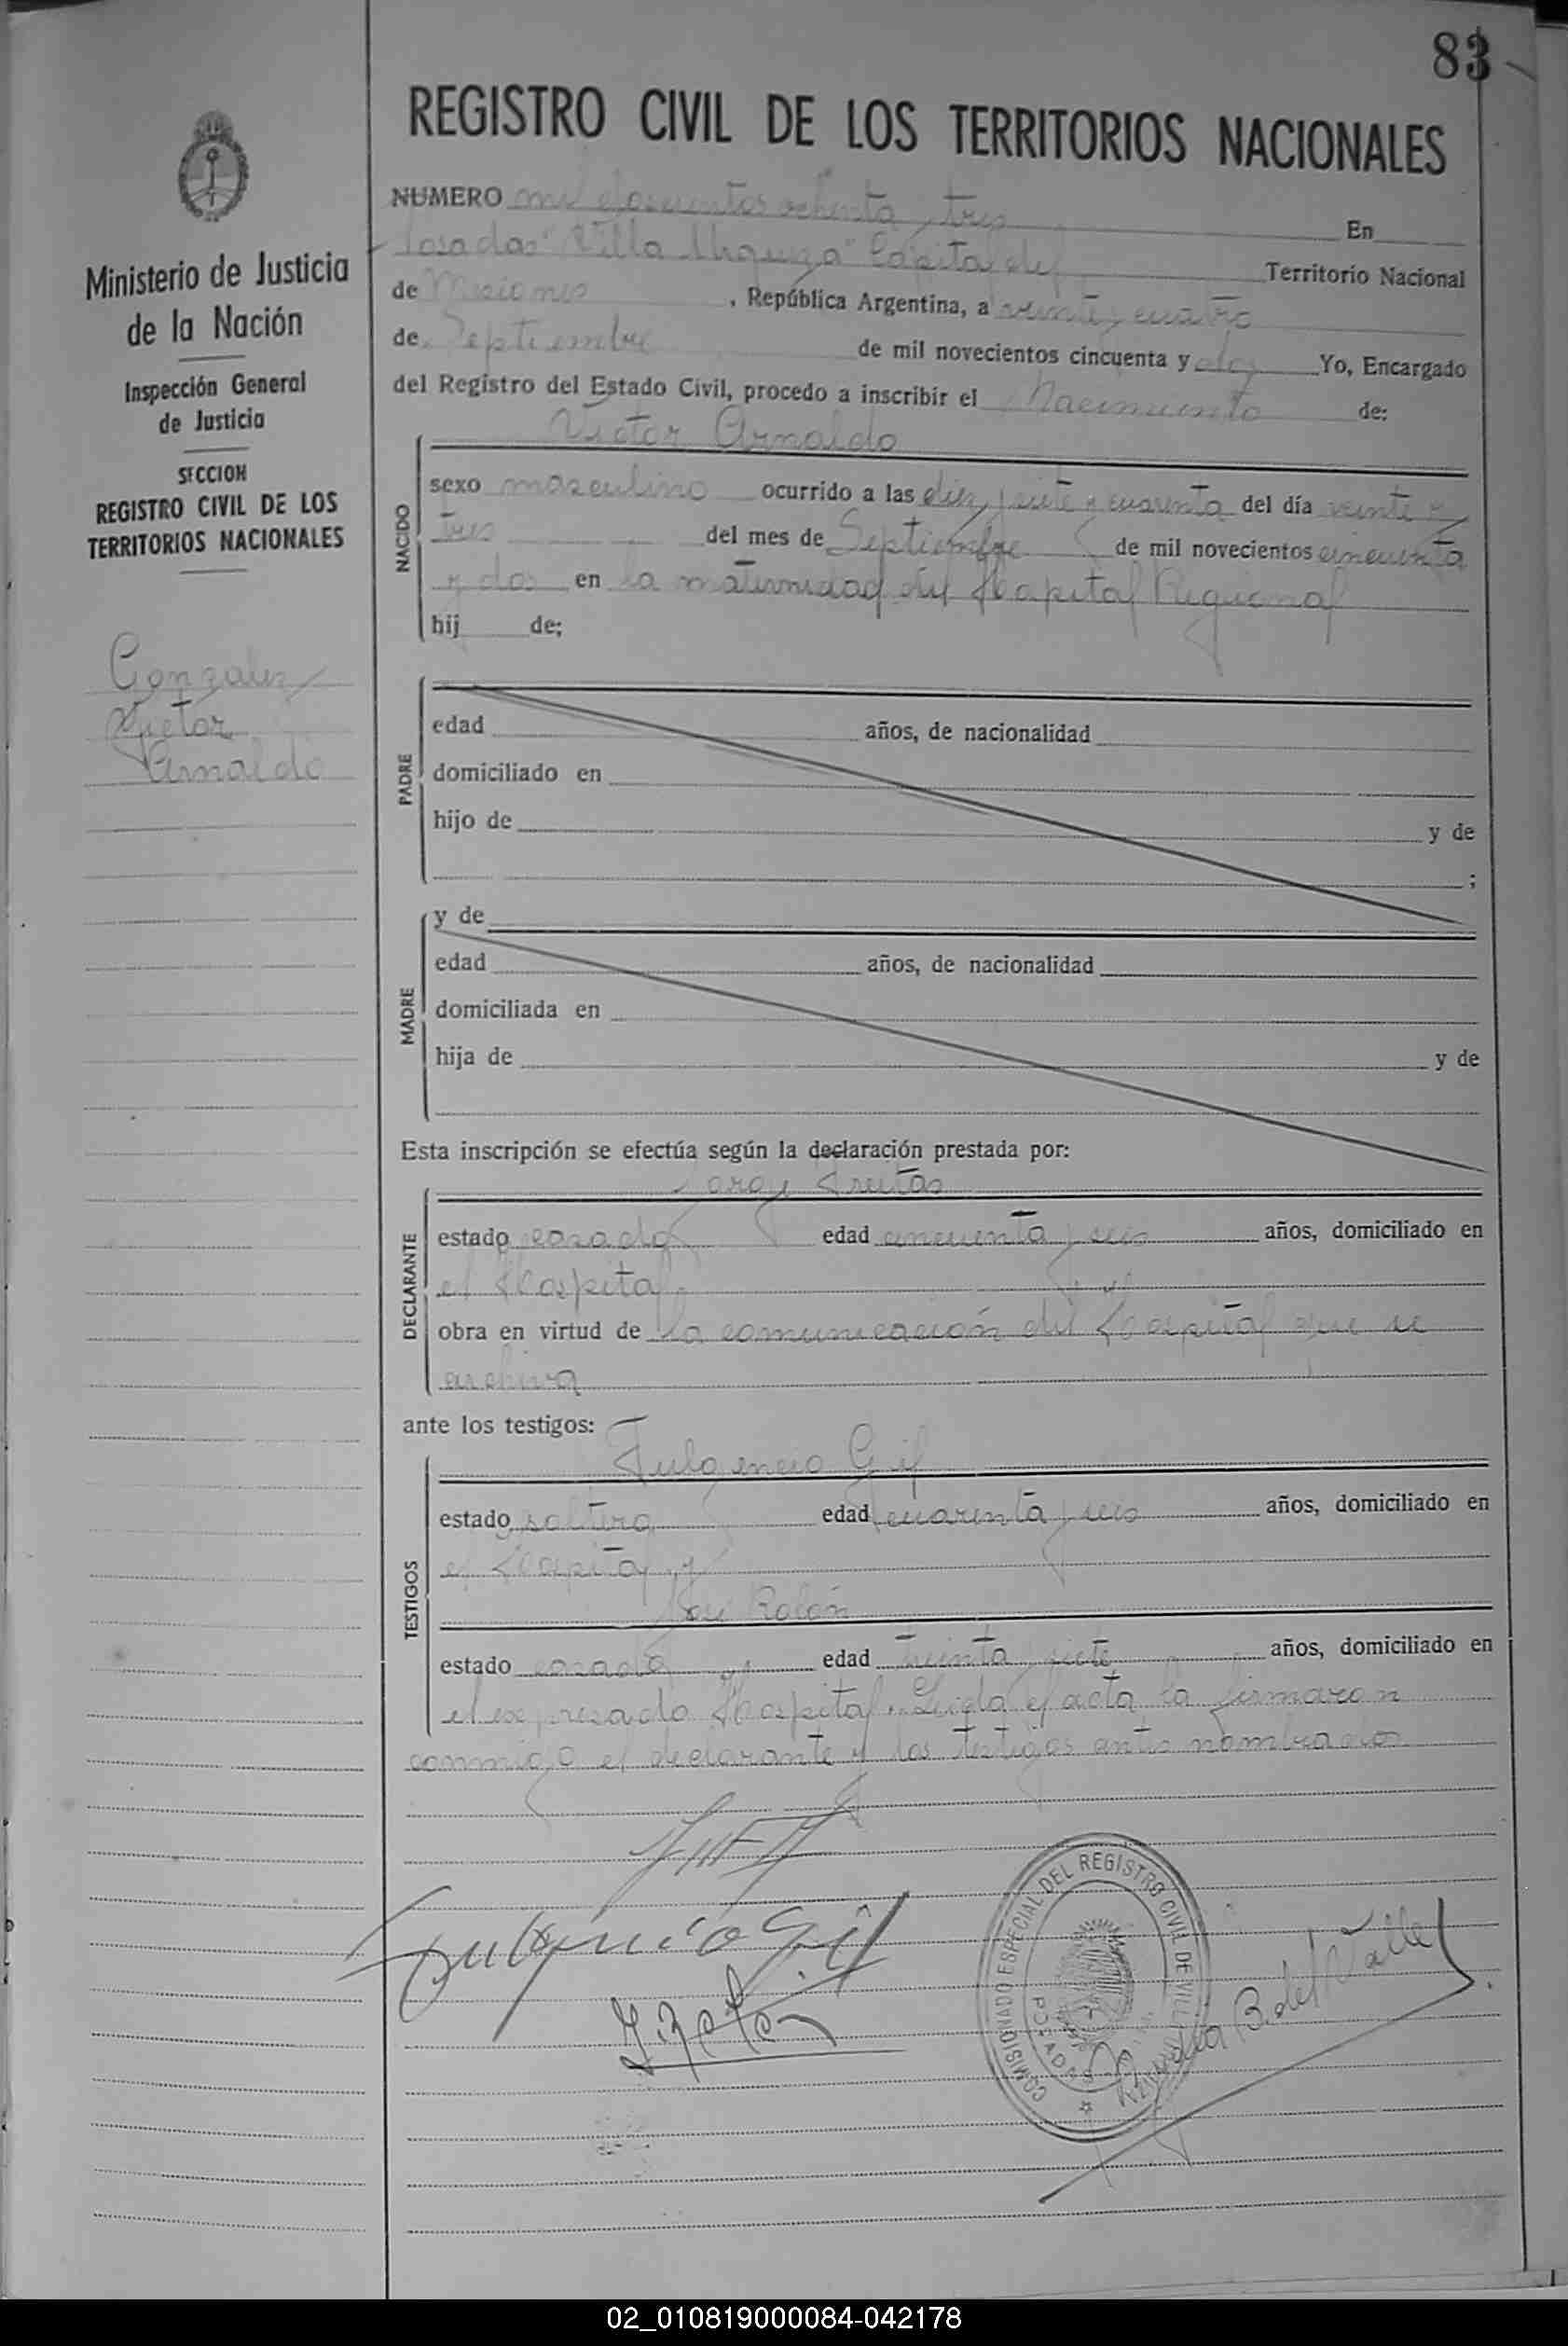 83
REGISTRO CIVIL DE LOS TERRITORIOS NACIONALES
NUMERO mil doscientos ochenta y tres En
Posadas "Villa Urquiza" Capital del Territorio Nacional
de Misiones, República Argentina, a veinte y cuatro
de Septiembre de mil novecientos cincuenta y dos Yo, Encargado
del Registro del Estado Civil, procedo a inscribir el Nacimiento de:
Ministerio de Justicia
de la Nación
Inspección General
de Justicia
SECCION
REGISTRO CIVIL DE LOS
TERRITORIOS NACIONALES
Gonzalez
Victor
Arnaldo
NACIDO
Victor Arnaldo
sexo masculino ocurrido a las diez y siete y cuarenta del día veinte y
tres del mes de Septiembre de mil novecientos cincuenta
y dos en la maternidad del Hospital Regional
hij de;
PADRE
edad años, de nacionalidad
domiciliado en
hijo de y de
;
MADRE
y de
edad años, de nacionalidad
domiciliada en
hija de y de
Esta inscripción se efectúa según la declaración prestada por:
DECLARANTE
Jorge Freitas
estado casado edad cincuenta y seis años, domiciliado en
el Hospital
obra en virtud de la comunicación del Hospital que se
archiva
ante los testigos:
TESTIGOS
Fulgencio Gil
estado soltero edad cuarenta y seis años, domiciliado en
el Hospital y
José Rolón
estado casado edad treinta y siete años, domiciliado en
el expresado Hospital. Leida el acta la firmaron
conmigo el declarante y los testigos antes nombrados
Fulgencio Gil
COMISIONADO ESPECIAL DEL REGISTRO CIVIL DE VILLA
POSADAS
B. del Valle
02_010819000084-042178